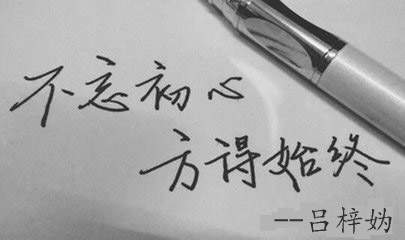 不忘初心
方得始终
--吕梓妫